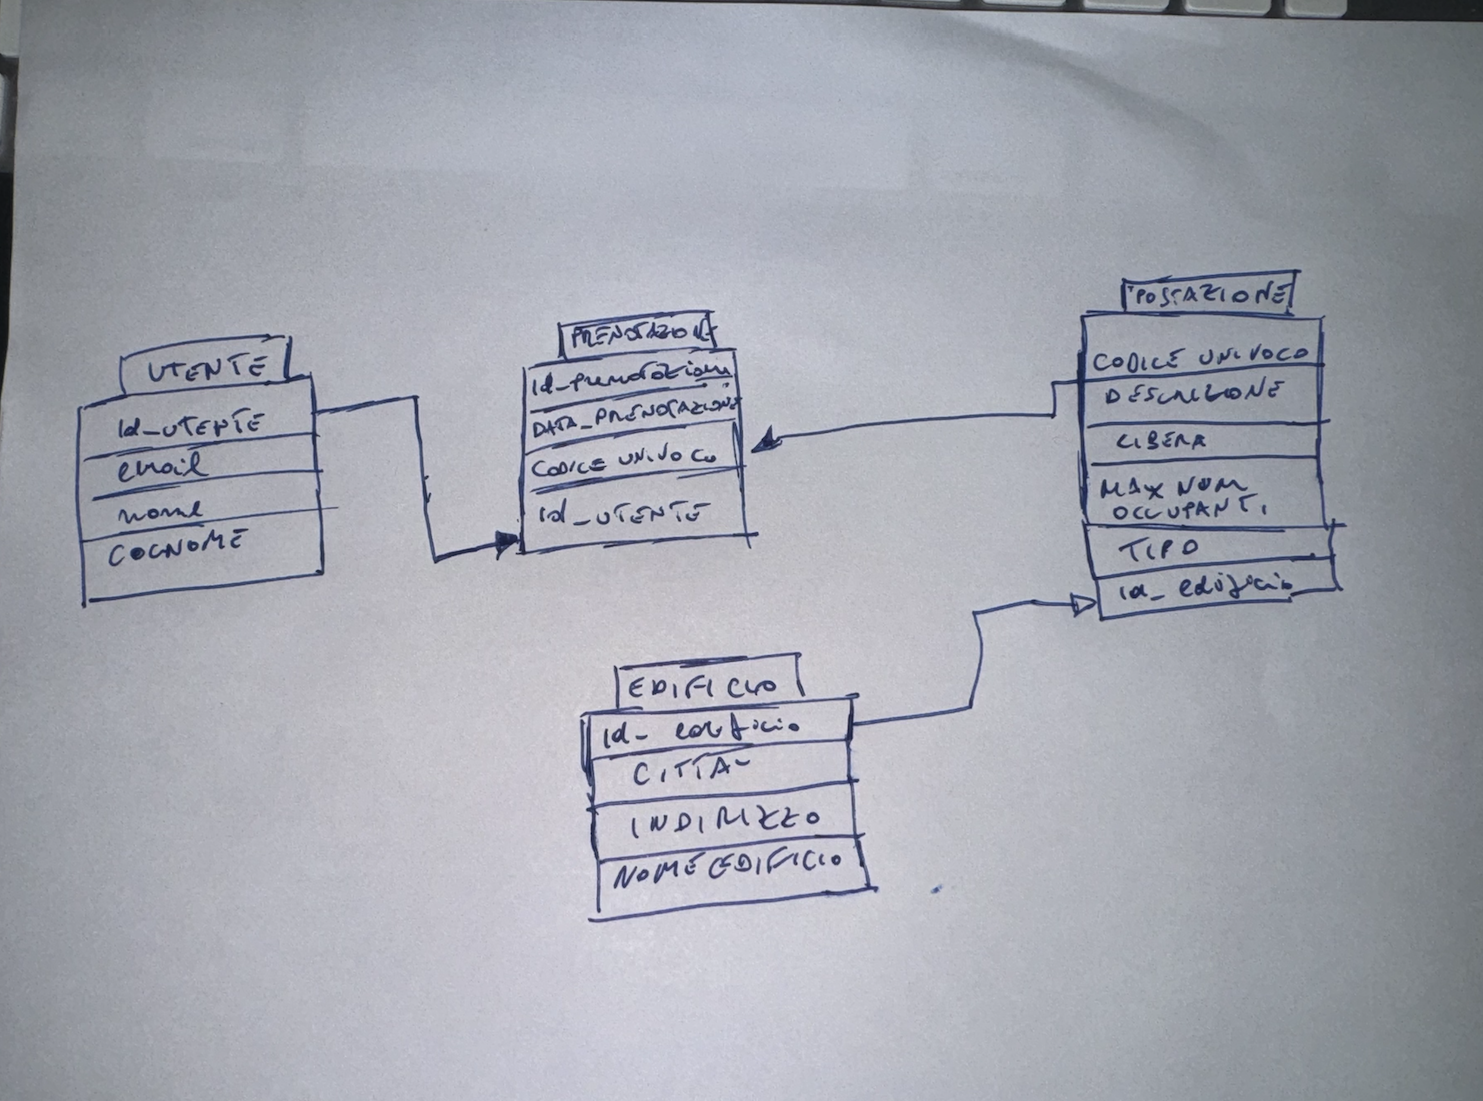 UTENTE
Id_UTENTE
email
nome
COGNOME
PRENOTAZIONE
Id_prenotazione
DATA_PRENOTAZIONE
CODICE UNIVOCO
Id_UTENTE
POSTAZIONE
CODICE UNIVOCO
DESCRIZIONE
LIBERA
MAX NUM
OCCUPANTI
TIPO
id_edificio
EDIFICIO
Id_edificio
CITTA'
INDIRIZZO
NOME EDIFICIO